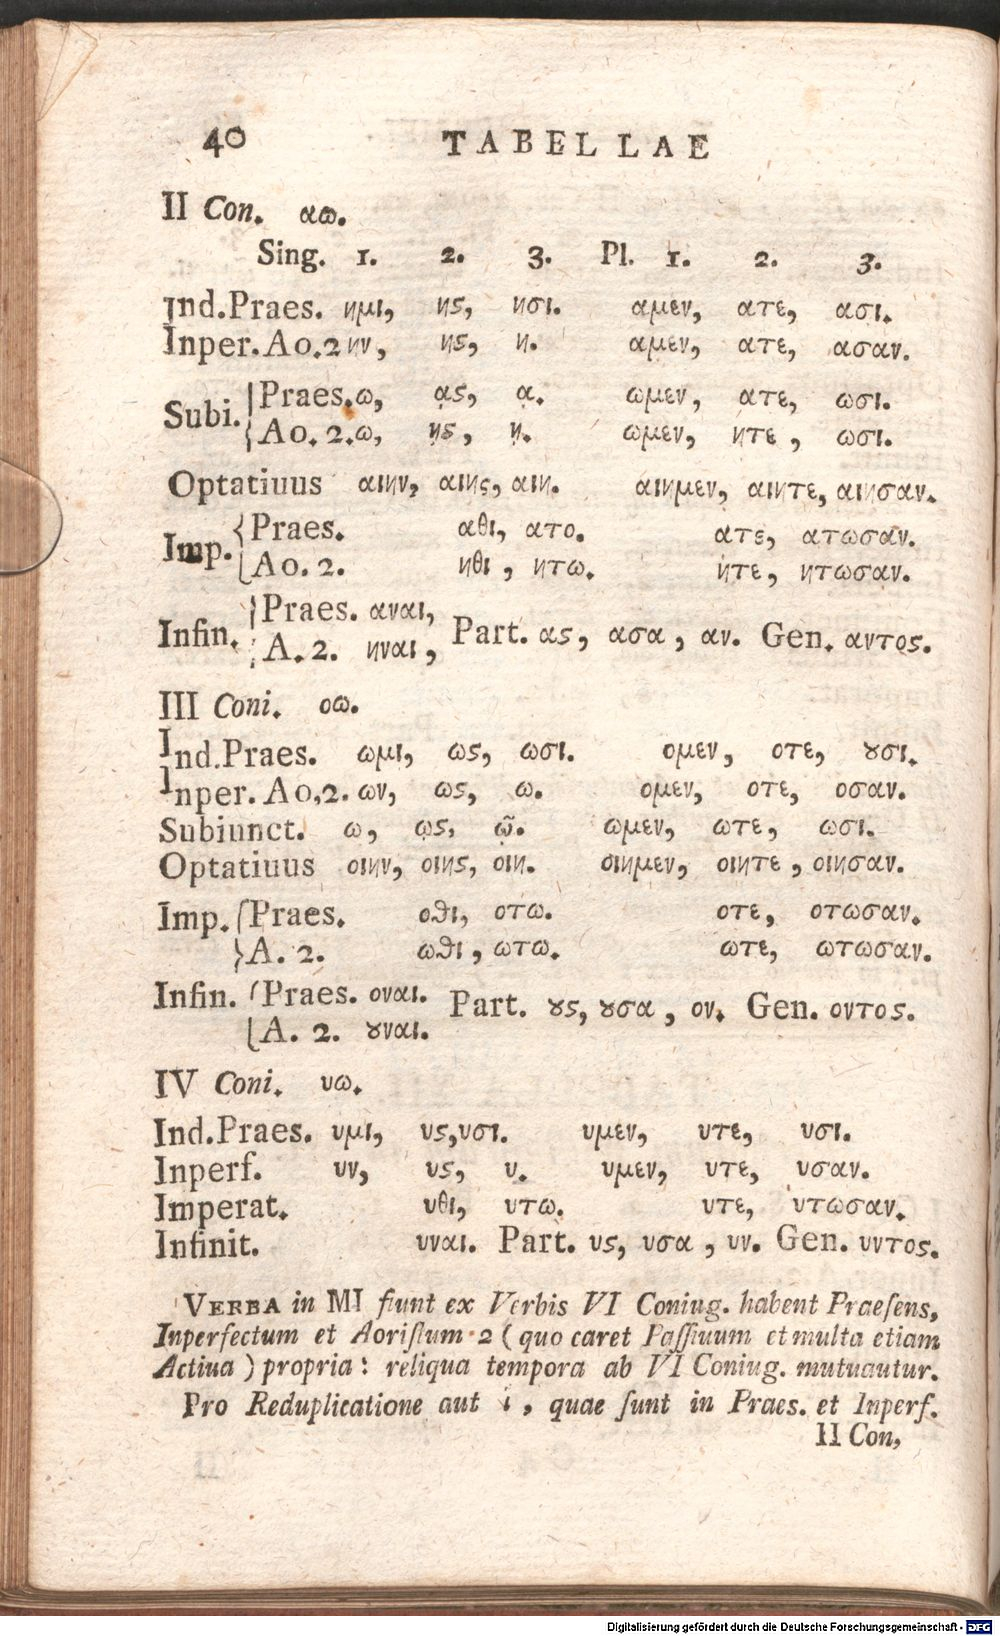 40 TABELLAE
II Con. αω.
Sing. 1. 2. 3. Pl. 1. 2. 3.
Ind. Praes. ημι, ης, ησι. αμεν, ατε, ασι.
Inper. Ao. 2 ην, ης, η. αμεν, ατε, ασαν.
Subi. { Praes. ω, ᾳς, ᾳ. ωμεν, ατε, ωσι.
Ao. 2. ω, ῃς, ῃ. ωμεν, ητε, ωσι.
Optatiuus αιην, αιης, αιη. αιημεν, αιητε, αιησαν.
Imp. { Praes. αθι, ατο. ατε, ατωσαν.
Ao. 2. ηθι, ητω. ητε, ητωσαν.
Infin. { Praes. αναι,
A. 2. ηναι, Part. ας, ασα, αν. Gen. αντος.
III Coni. οω.
Ind. Praes. ωμι, ως, ωσι. ομεν, οτε, ȣσι.
Inper. Ao. 2. ων, ως, ω. ομεν, οτε, οσαν.
Subiunct. ω, ῳς, ῷ. ωμεν, ωτε, ωσι.
Optatiuus οιην, οιης, οιη. οιημεν, οιητε, οιησαν.
Imp. { Praes. οϑι, οτω. οτε, οτωσαν.
A. 2. ωϑι, ωτω. ωτε, ωτωσαν.
Infin. { Praes. οναι. Part. ȣς, ȣσα, ον. Gen. οντος.
A. 2. ȣναι.
IV Coni. υω.
Ind. Praes. υμι, υς, υσι. υμεν, υτε, υσι.
Inperf. υν, υς, υ. υμεν, υτε, υσαν.
Imperat. υθι, υτω. υτε, υτωσαν.
Infinit. υναι. Part. υς, υσα, υν. Gen. υντος.
VERBA in MI fiunt ex Verbis VI Coniug. habent Praeſens,
Inperfectum et Aoriſtum 2 (quo caret Paſſiuum et multa etiam
Actiua) propria: reliqua tempora ab VI Coniug. mutuautur.
Pro Reduplicatione aut ι, quae ſunt in Praes. et Inperf.
II Con,
Digitalisierung gefördert durch die Deutsche Forschungsgemeinschaft - DFG